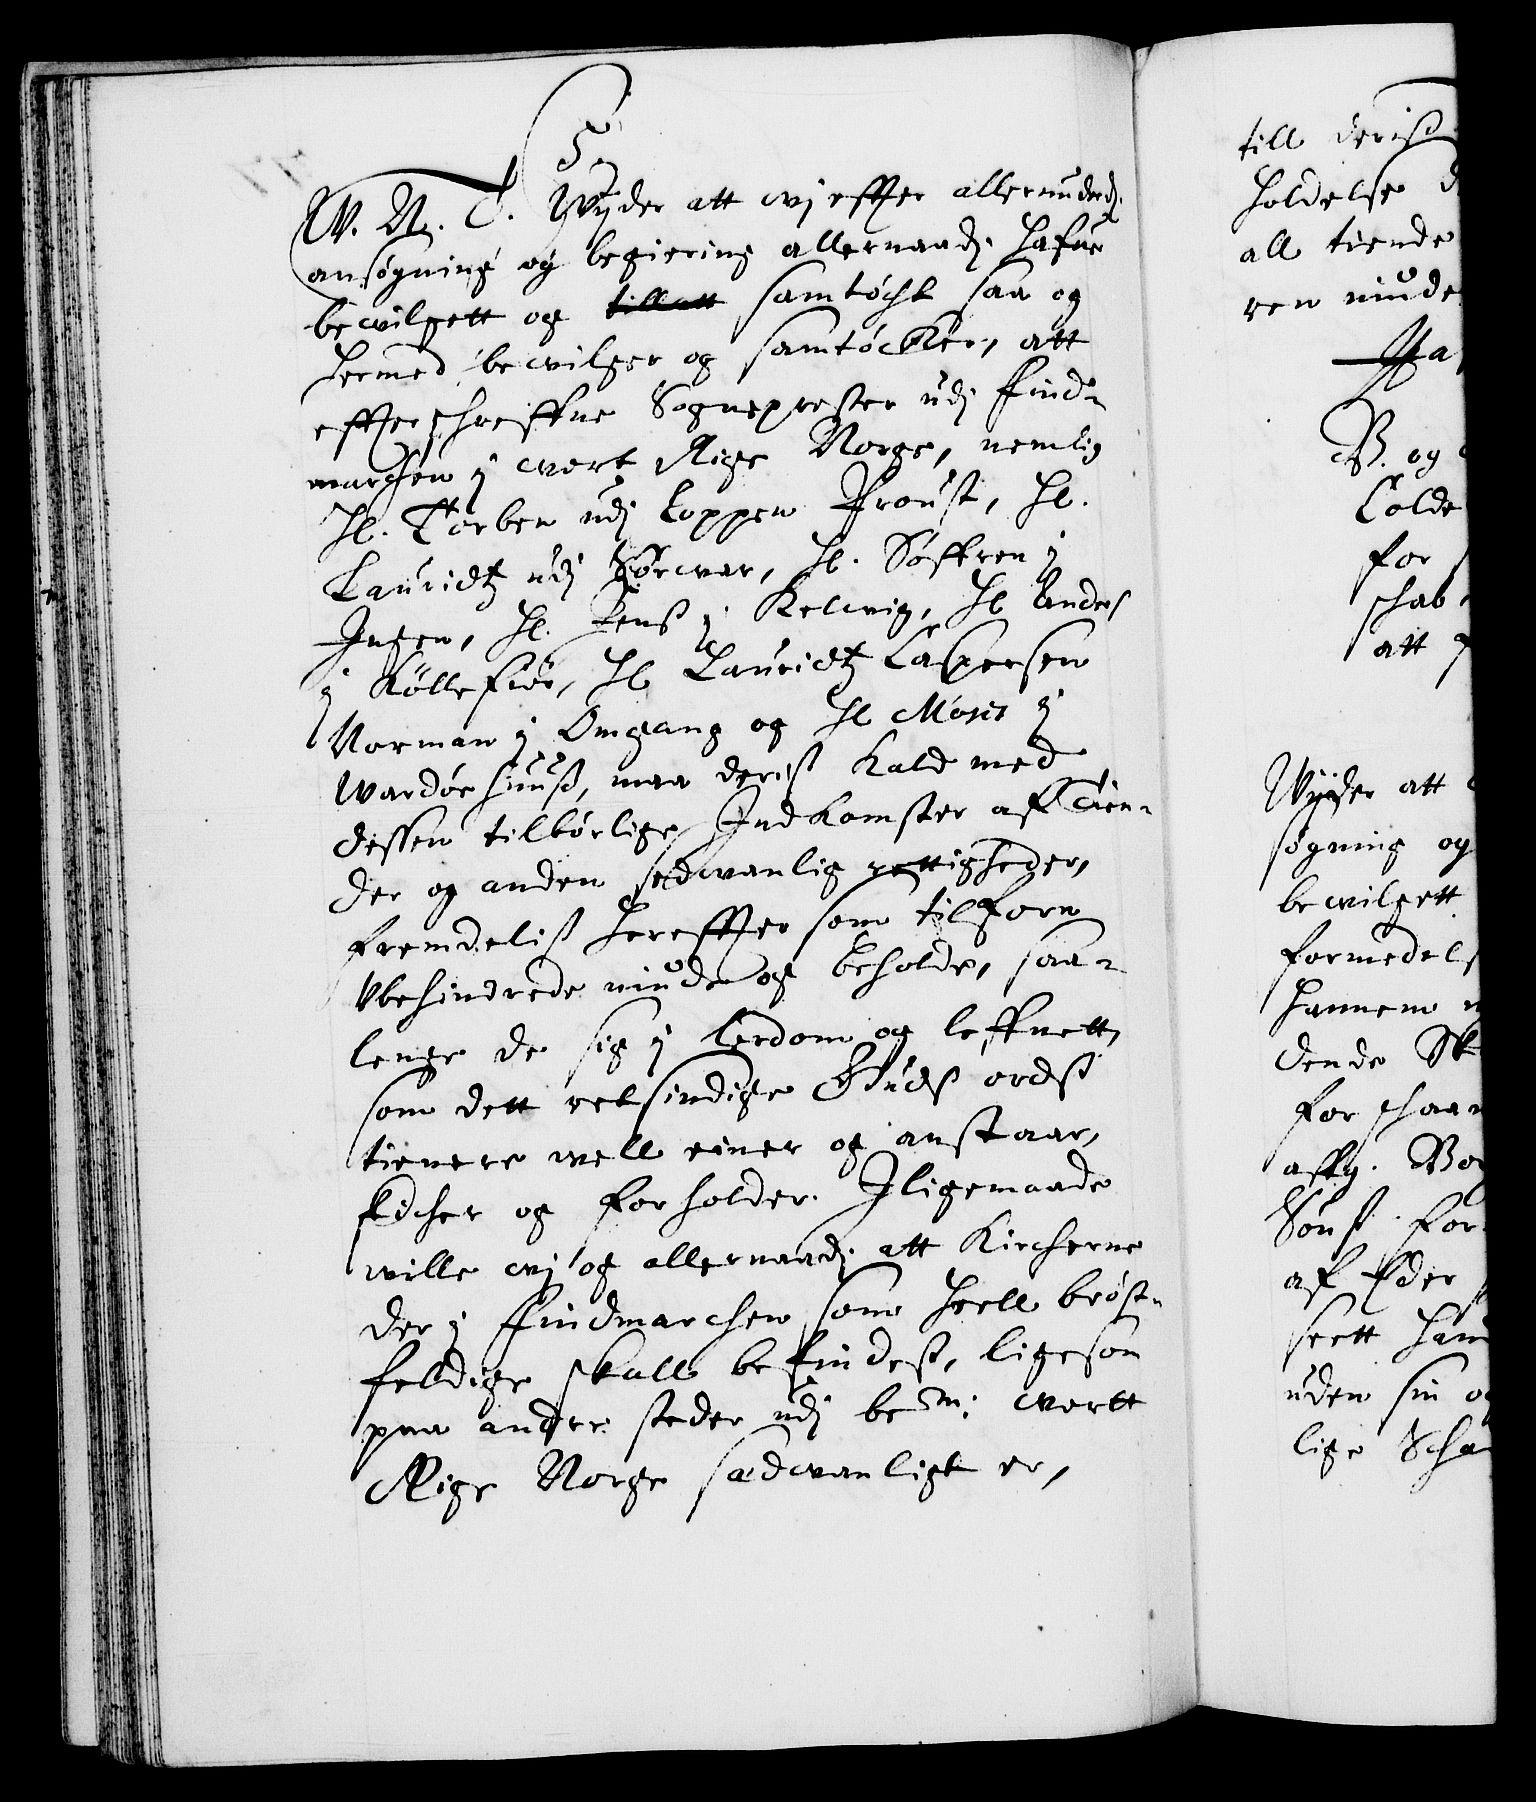 5.
W. N. T. Wijder att wj effter allerunderd:
ansøgning og begiering allernaad: hafue
bewilgett og samtöcht saa og
hermed bewilger og samtöcker, att
effterschreffne Sogneprester udj Find-
marchen i wort Rige Norge, nemlig
Hl. Torben udj Loppen Proust, Hl.
Lauridtz udj Hørwær, Hl. Søffren j
Ingen, Hl. Jenß j Kelwig, Hl Anders
j Köllefior, Hl Lauridtz Caspersen
Norman j Omgang og Hl Moris j
Wardøehuuß, maa deriß Kald med
dessen tilbørlige Indkomster af Tien-
der og anden sedwanlig rettigheder,
fremdeliß hereffter som tilforn
Vbehindrede niude og beholde, saa-
lenge de sig j lerdom og leffnett,
som dett retsindige Gudß ordß
tienere well eigner og anstaar,
skicher og forholder. Iligemaade
wille wj og allernaad: att Kircherne
der j Findmarchen som heell brøst-
feldige skall befindeß, ligesom
paa andre steder udj bem: wortt
Rige Norge sædwanligt er,
till deriß
holdelse
all tiende
ren niude
B. og
Colde
for
schab
att
Wijder att
søgning og
bewilgett
formedelst
hannem
dende
forschaan
affg. Bo
Sönß for
af Eder
sett ham
uden sin
lige Scha